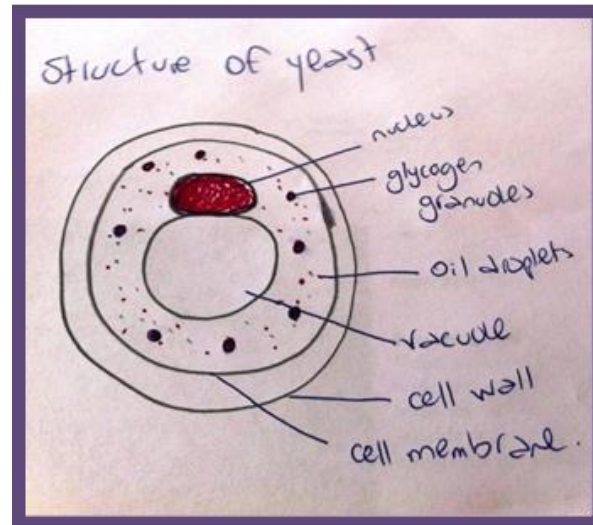 Structure of yeast
nucleus
glycogen
granules
oil droplets
vacuole
cell wall
cell membrane.